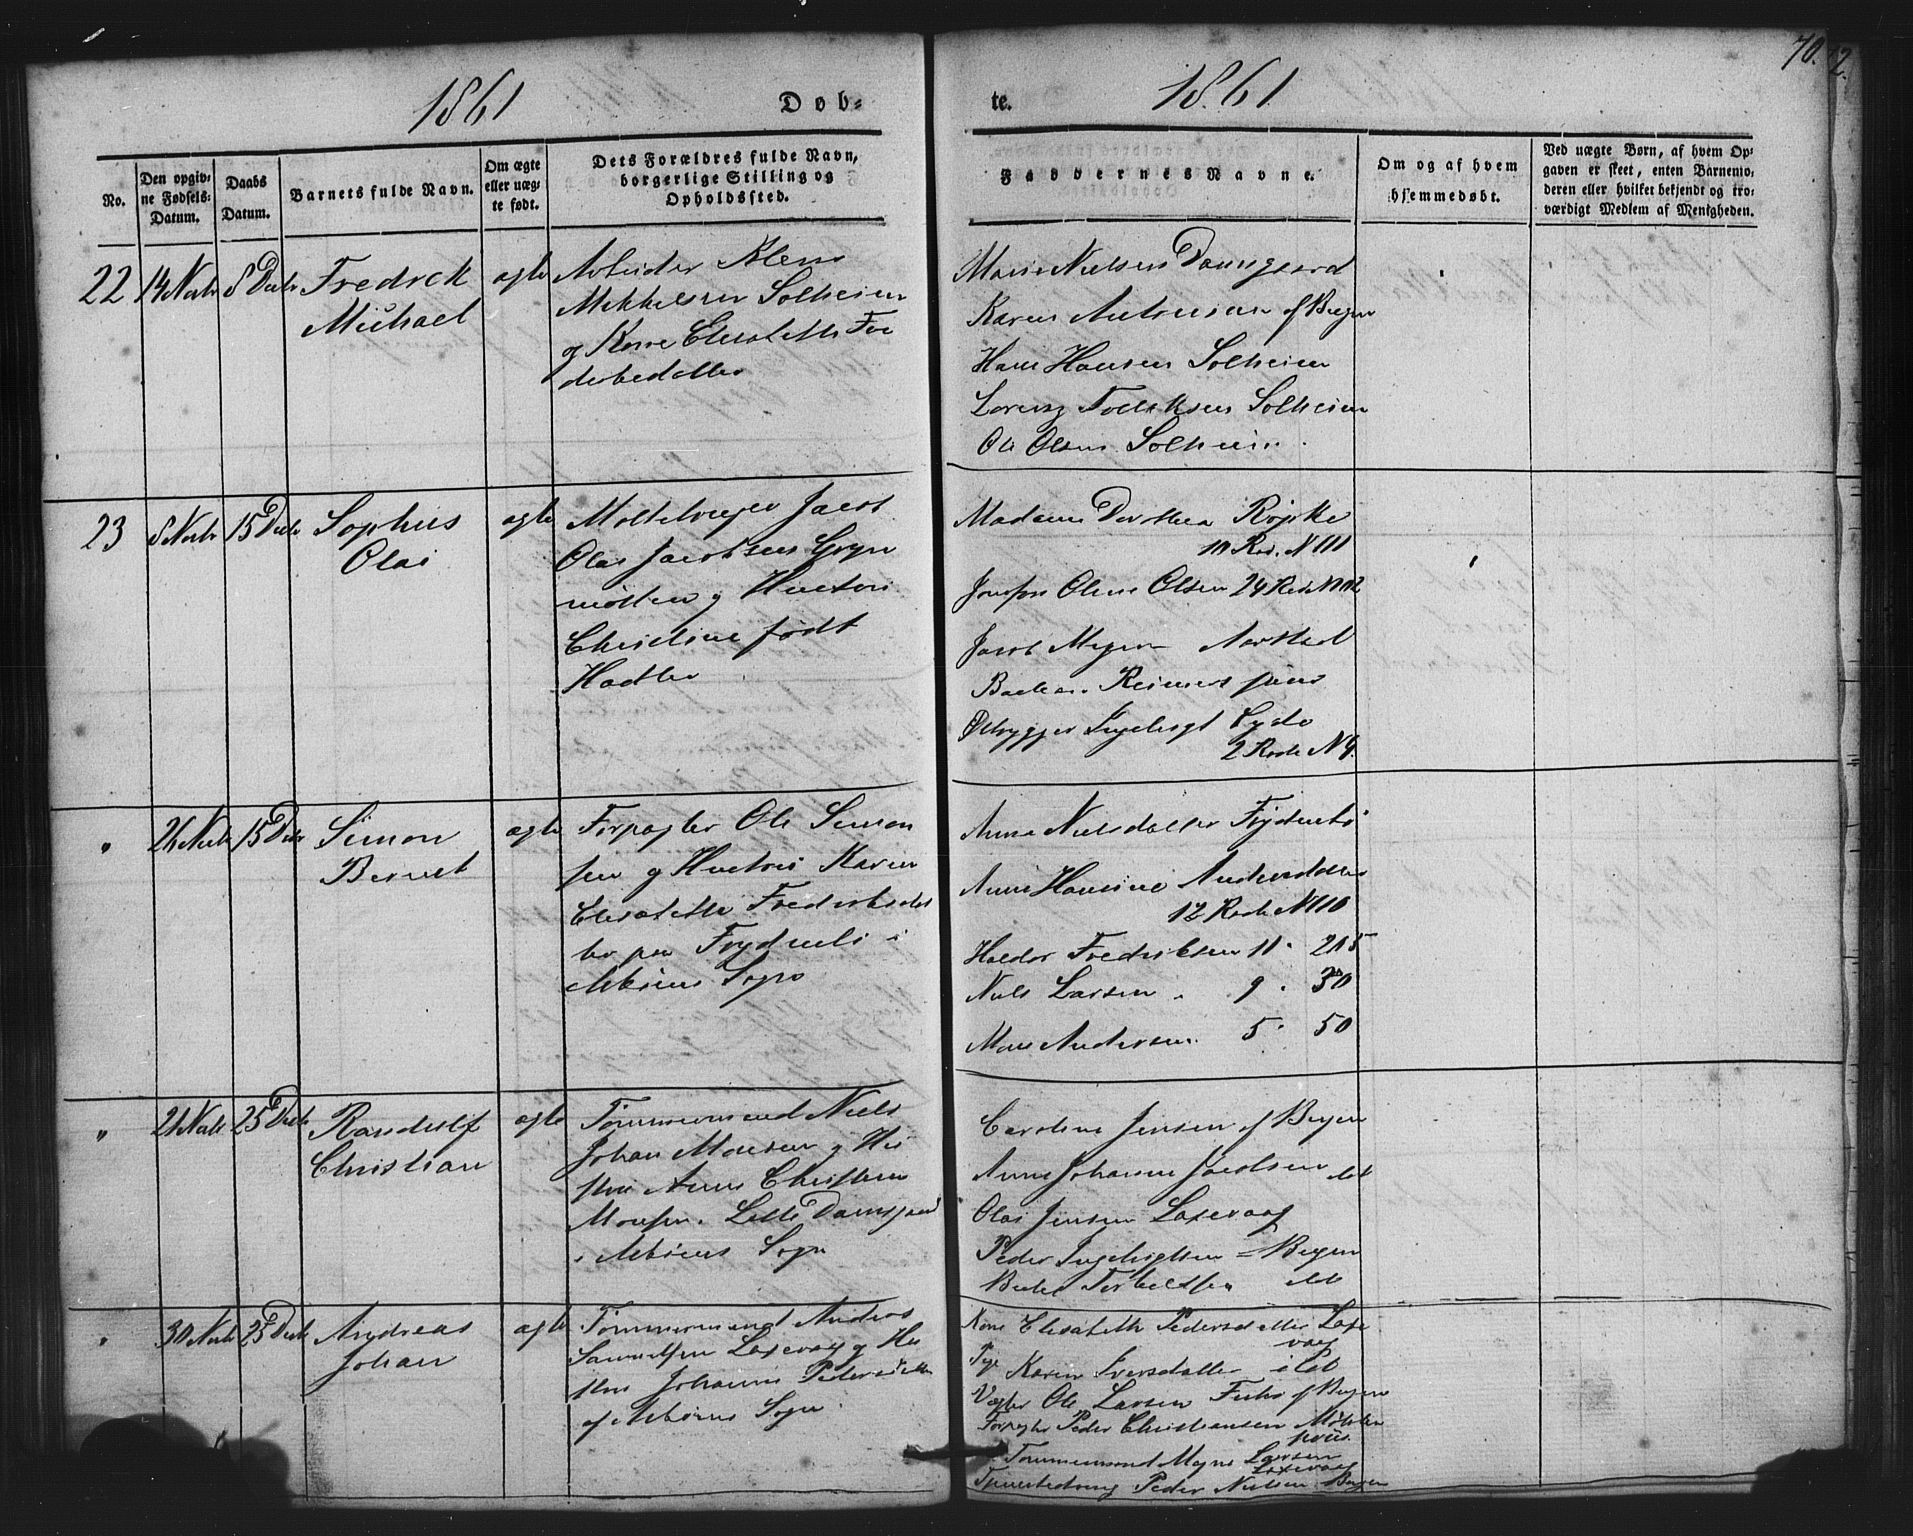 1861
Døb-
No.
Den opgiv-
ne Fødsels-
Datum.
Daabs
Datum.
Barnets fulde Navn.
Om ægte
eller uæg-
te født.
Dets Forældres fulde Navn,
borgerlige Stilling og
Opholdssted.
22
14 Novbr
8 Decbr
Fredrek
Michael
ægte
Arbeider Klem
Mikkelsen Solheim
og Kone Elisabeth Fre
driksdatter
23
8 Novbr
15 Decbr
Sophus
Olai
ægte
Møllebruger Jacob
Olai Jacobsen Gryn
møllen og Hustru
Christine født
"
26 Novbr
15 Decbr
Simon
Berent
ægte
Forpagter Ole Simon
sen og Hustru Karen
Elisabeth Fredriksdat
ter paa Frydenli i
Askøens Sogn
"
21 Novbr
25 Decbr
Randulf
Christian
ægte
Tømmermand Niels
Johan Monsen og Hu
stru Anne Christine
Monsen. Lille Damsgaard
i Askøens Sogn
"
30 Novbr
25 Decbr
Andreas
Johan
ægte
Tømmermand Anders
Samuelsen Laxevaag og Hu
stru Johanne Pedersdatter
af Askøens Sogn.
te.
1861
70.
2.
Faddernes Navne.
Om og af hvem
hjemmedøbt.
Ved uægte Børn, af hvem Op-
gaven er skeet, enten Barnemo-
deren eller hvilket bekjendt og tro-
værdigt Medlem af Menigheden.
Marie Nielsen Damsgaard
Karen Antonisen af Bergen
Hans Hansen Solheim
Lorentz Fredriksen Solheim
Ole Olsen Solheim.
Madame Dorothea Røpke
10 Rod. N 111
Olene Olsen 24 Rode N 102
Jacob Meyer Aarstad
Reimers
2 Rode N 9.
Anne Nielsdatter Frydenli
Anne Hansine Andersdatter
12 Rode N 110
Haldor Fredriksen 11 " 215
Niels Larsen " 9 " 30
Mons Andersen 5 " 50
Caroline Jensen af Bergen
Anne Johanne Jacobsen do
Olai Jensen Laxevaag
Peder Ingebrigtsen = Bergen
Peder Torkelsen do
Kone Elisabeth Pedersdatter Laxe
vaag
Pige Karen Iversdatter ibd
Vægter Ole Larsen Fuhr af Bergen
Forpagter Peder Christiansen Møhlen
priis.
Tømmermand Mogns Larsen
Laxevaag
Tjenestedreng Peder Nielsen Bergen